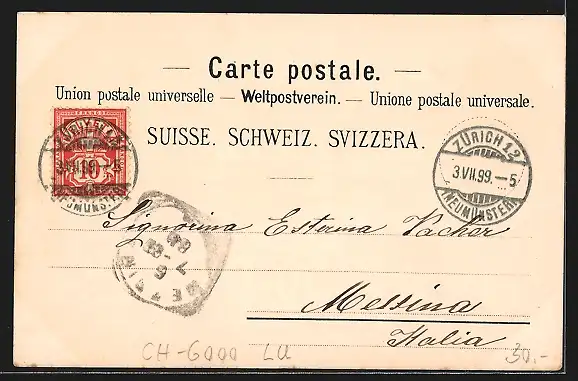 — Carte postale. —
Union postale universelle — Weltpostverein. — Unione postale universale.
SUISSE. SCHWEIZ. SVIZZERA.
10
ZÜRICH 12
3.VII.99.–5
(NEUMÜNSTER)
Signorina Esterina Vacher
Messina
Italia
CH-6000 LU
30.-